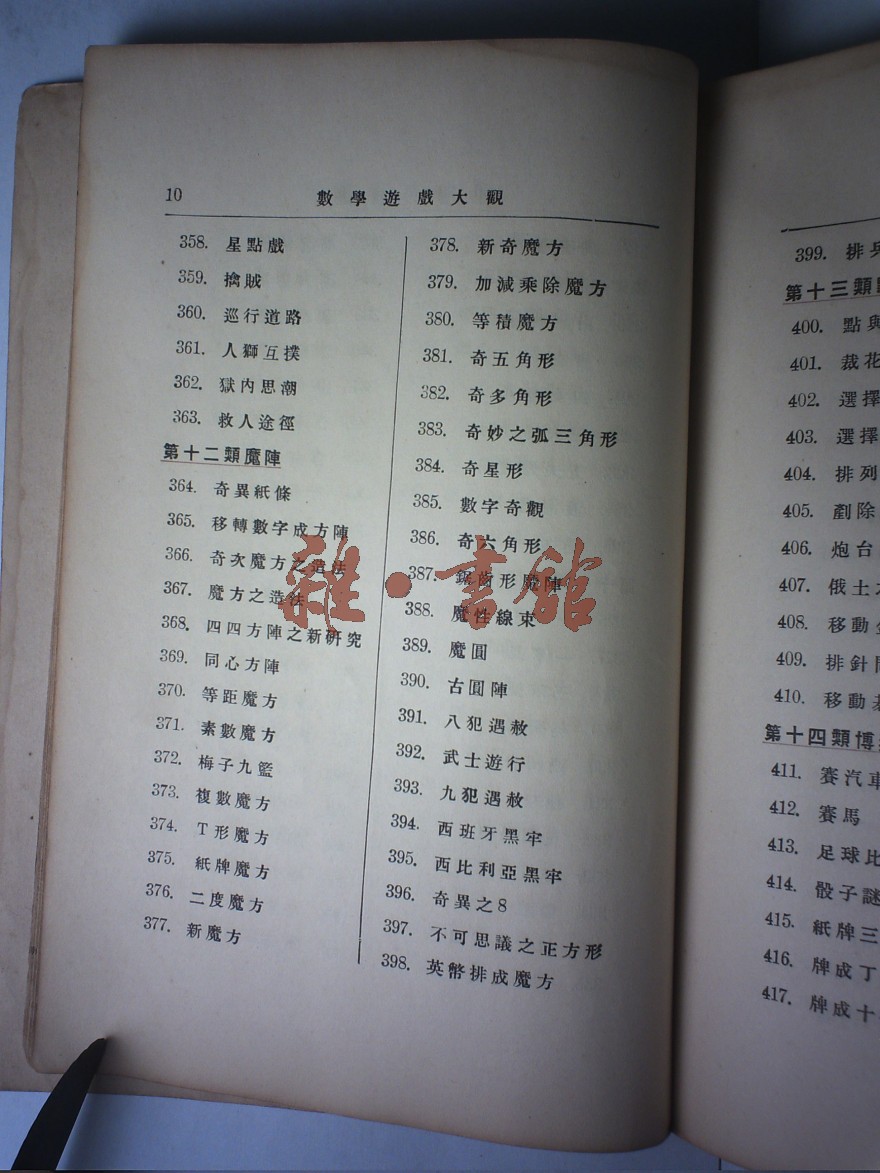 10 數學遊戲大觀
358. 星點戲
359. 擒賊
360. 巡行道路
361. 人獅互撲
362. 獄內思潮
363. 救人途徑
第十二類魔陣
364. 奇異紙條
365. 移轉數字成方陣
366. 奇次魔方之造法
367. 魔方之造法
368. 四四方陣之新研究
369. 同心方陣
370. 等距魔方
371. 素數魔方
372. 梅子九籃
373. 複數魔方
374. T形魔方
375. 紙牌魔方
376. 二度魔方
377. 新魔方
378. 新奇魔方
379. 加減乘除魔方
380. 等積魔方
381. 奇五角形
382. 奇多角形
383. 奇妙之弧三角形
384. 奇星形
385. 數字奇觀
386. 奇六角形
387. 鋸齒形魔陣
388. 魔性線束
389. 魔圓
390. 古圓陣
391. 八犯遇赦
392. 武士遊行
393. 九犯遇赦
394. 西班牙黑牢
395. 西比利亞黑牢
396. 奇異之8
397. 不可思議之正方形
398. 英幣排成魔方
雜·書館
399. 排兵
第十三類
400. 點與
401. 裁花
402. 選擇
403. 選擇
404. 排列
405. 剷除
406. 炮台
407. 俄土
408. 移動
409. 排針
410. 移動
第十四類博
411. 賽汽車
412. 賽馬
413. 足球比
414. 骰子謎
415. 紙牌三
416. 牌成丁
417. 牌成十